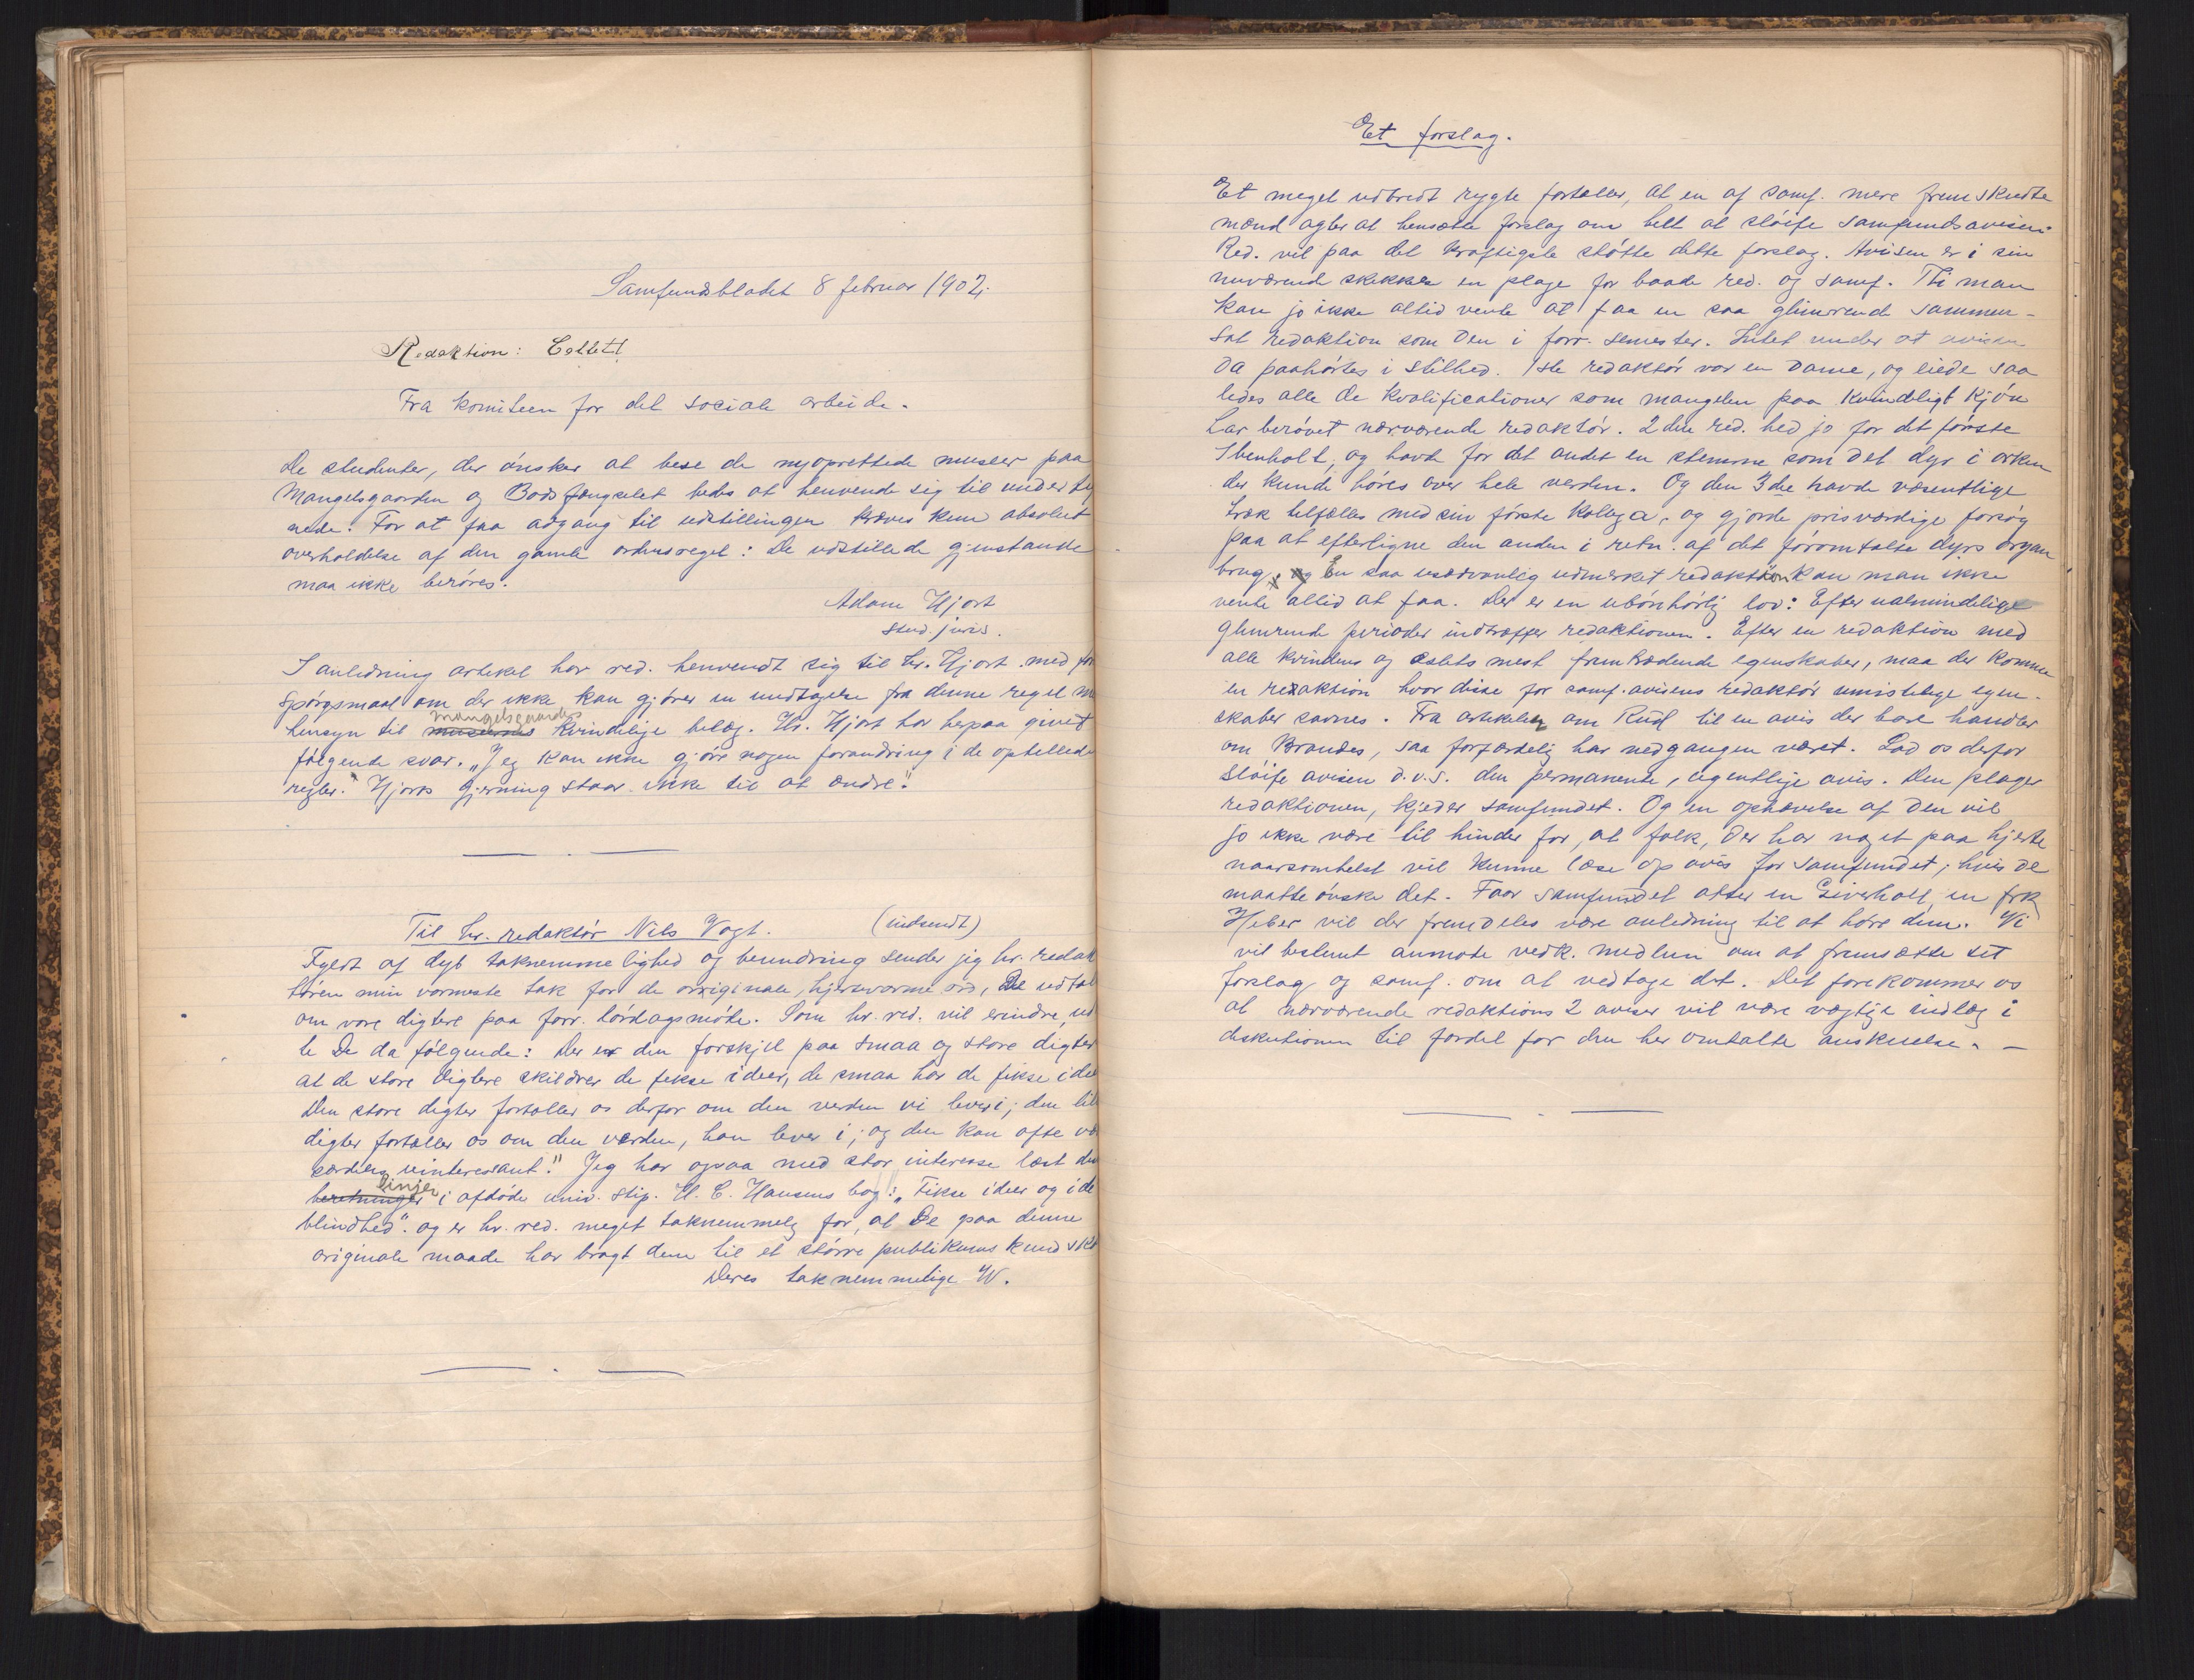 Samfundsbladet 8 februar 1902.
Redaktion: Collett
Fra komiteen for det sociale arbeide.
De studenter, der ønsker at bese de nyoprettede museer paa
Mangelsgaarden og Bodsfængselet bedes at henvende sig til underteg
nede. For at faa adgang til udstillingen kræves kun absolut
overholdelse af den gamle ordensregel: De udstillede gjenstande
maa ikke berøres.
Adam Hjort
stud. juris.
I anledning artikel har red. henvendt sig til hr. Hjort med fore
spørgsmaal om der ikke kan gjøres en undtagelse fra denne regel m
hensyn til museernes mangelsgaardens kvindelige belæg. Hr. Hjort har herpaa givet
følgende svar. „Jeg kan ikke gjøre nogen forandring i de opstillede
regler." Hjorts gjerning staar ikke til at ændre."
Til hr. redaktør Nils Vogt. (indsendt)
Fyldt af dyb taknemmelighed og beundring sender jeg hr. redak
tøren min varmeste tak for de originale, hjertevarme ord, De udtal
om vore digtere paa forr. lørdagsmøde. Som hr. red. vil erindre, ud
te De da følgende: Der er den forskjel paa smaa og store digter
at de store digtere skildrer de fikse ideer, de smaa har de fikse idee
Den store digter fortæller os derfor om den verden vi lever i; den lil
digter fortæller os om den verden, han lever i; og den kan ofte væ
særdeles uinteressant." Jeg har ogsaa med stor interesse læst den
beretninger linjer i afdøde univ. stip. H. C. Hansens bog: „Fikse ideer og ide
blindhed". og er hr. red. meget taknemmelig for, at De paa denne
originale maade har bragt dem til et større publikums kundska
Deres taknemmelige W.
Et forslag.
Et meget udbredt rygte fortæller, at en af samf. mere fremskudte
mænd agter at hensætte forslag om helt at sløife samfundsavisen.
Red. vil paa det kraftigste støtte dette forslag. Avisen er i sin
nuværend skikkelse en plage for baade red. og samf. Thi man
kan jo ikke altid vente at faa en saa glimrende sammen-
sat redaktion som den i forr. semester. Intet under at avisen
da paahørtes i stilhed. 1ste redaktør var en dame, og eiede saa
ledes alle de kvalifikationer som mangelen paa kvindeligt kjøn
har berøvet nærværende redaktør. 2den red. hed jo for det første
Ibenholt, og havde for det andet en stemme som det dyr i ørken
der kunde høres over hele verden. Og den 3die havde væsentlige
træk tilfælles med sin første kollega, og gjorde prisværdige forsøg
paa at efterligne den anden i retn. af det føromtalte dyrs organ
brug. og En saa usædvanlig udmerket redaktion kan man ikke
vente altid at faa. Der er en ubønhørlig lov: Efter ualmindelige
glimrende perioder indtræffer redaktionen. Efter en redaktion med
alle kvindens og æslets mest fremtrædende egenskaber, maa der komme
en redaktion hvor disse for samf. avisens redaktør umistelige egen-
skaber savnes. Fra artikelen om Rud til en avis der bare handler
om Brandes, saa forfærdelig har nedgangen været. Lad os derfor
sløife avisen d.v.s. den permanente, egentlige avis. Den plager
redaktionen, kjeder samfundet. Og en ophævelse af den vil
jo ikke være til hinder for, at folk, der har noget paa hjerte
naarsomhelst vil kunne læse op avis for samfundet, hvis de
maatte ønske det. Faar samfundet atter en Giverholt, en frk
Heber vil der fremdeles være anledning til at høre dem. Vi
vil bestemt anmode vedk. medlem om at fremsætte sit
forslag og samf. om at vedtage det. Det forekommer os
at nærværende redaktions 2 aviser vil være vægtige indlæg i
diskutionen til fordel for den her omtalte anskuelse. —